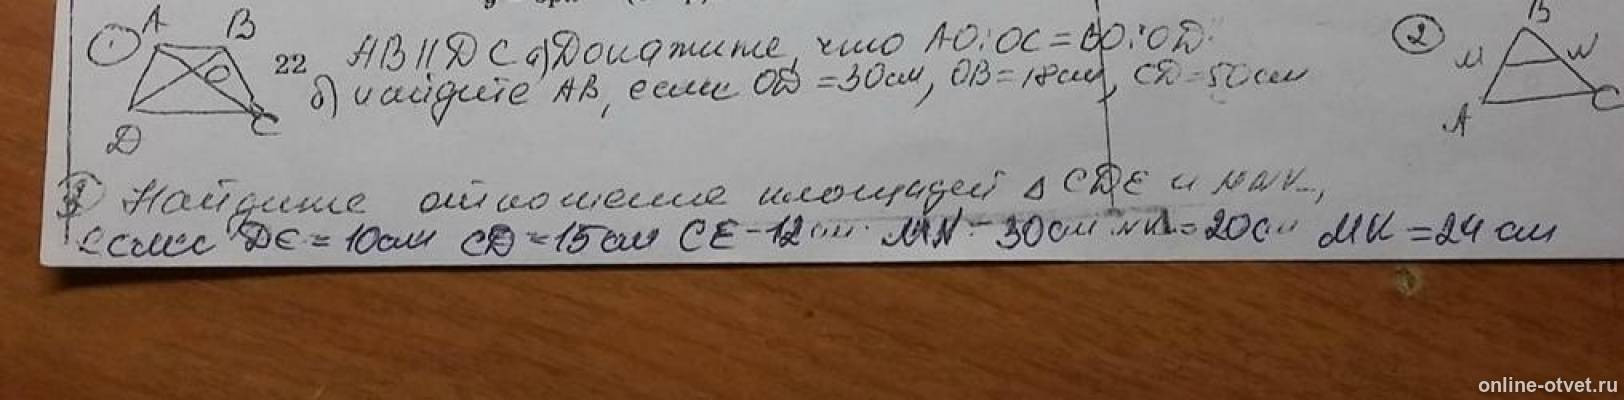 1 A B 22 AB∥DC а) Докажите, что AO:OC=BO:OD
D O C б) найдите AB, если OD=30см, OB=18см, CD=50см
2 B M N A C
Найдите отношение площадей Δ CDE и MNK,
если DE=10см CD=15см CE-12см MN-30см NK=20см MK=24 см
online-otvet.ru